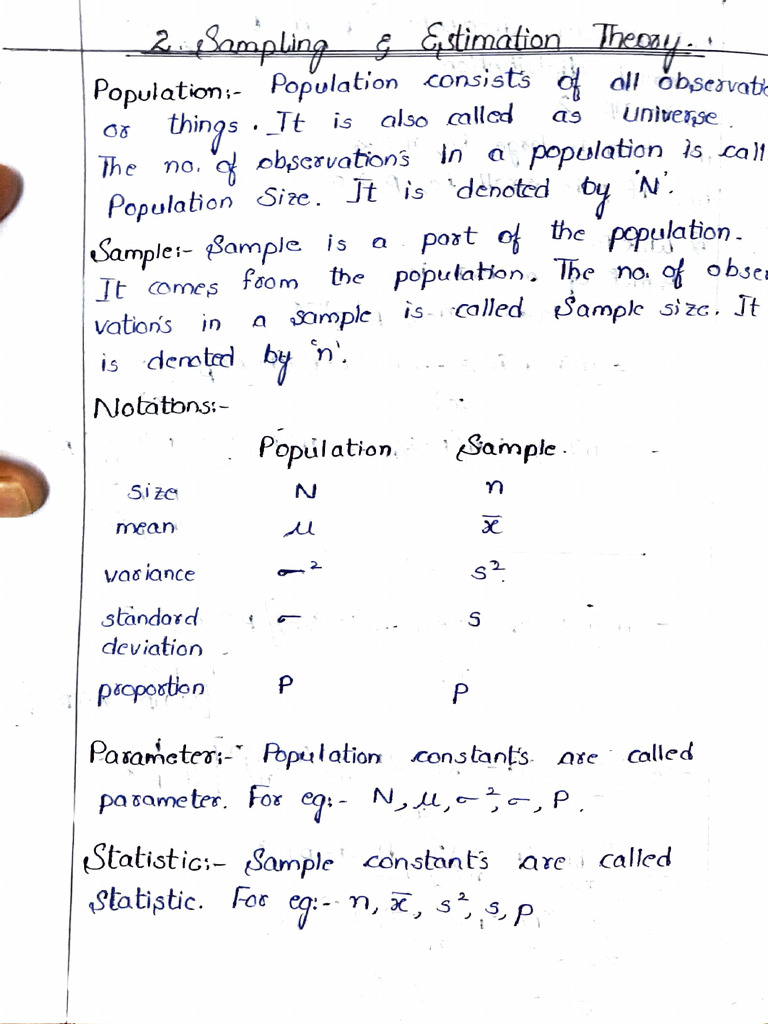 2. Sampling & Estimation Theory.
Population:- Population consists of all observati
or things. It is also called as universe.
The no. of observations in a population is call
Population Size. It is denoted by 'N'.
Sample:- Sample is a part of the population.
It comes from the population. The no. of obser
vations in a sample is called Sample size. It
is denoted by 'n'.
Notations:-
Population Sample.
size N n
mean μ x̅
variance σ² s²
standard σ s
deviation
proportion P p
Parameter:- Population constants are called
parameter. For eg:- N, μ, σ², σ, P.
Statistic:- Sample constants are called
Statistic. For eg:- n, x̅, s², s, p